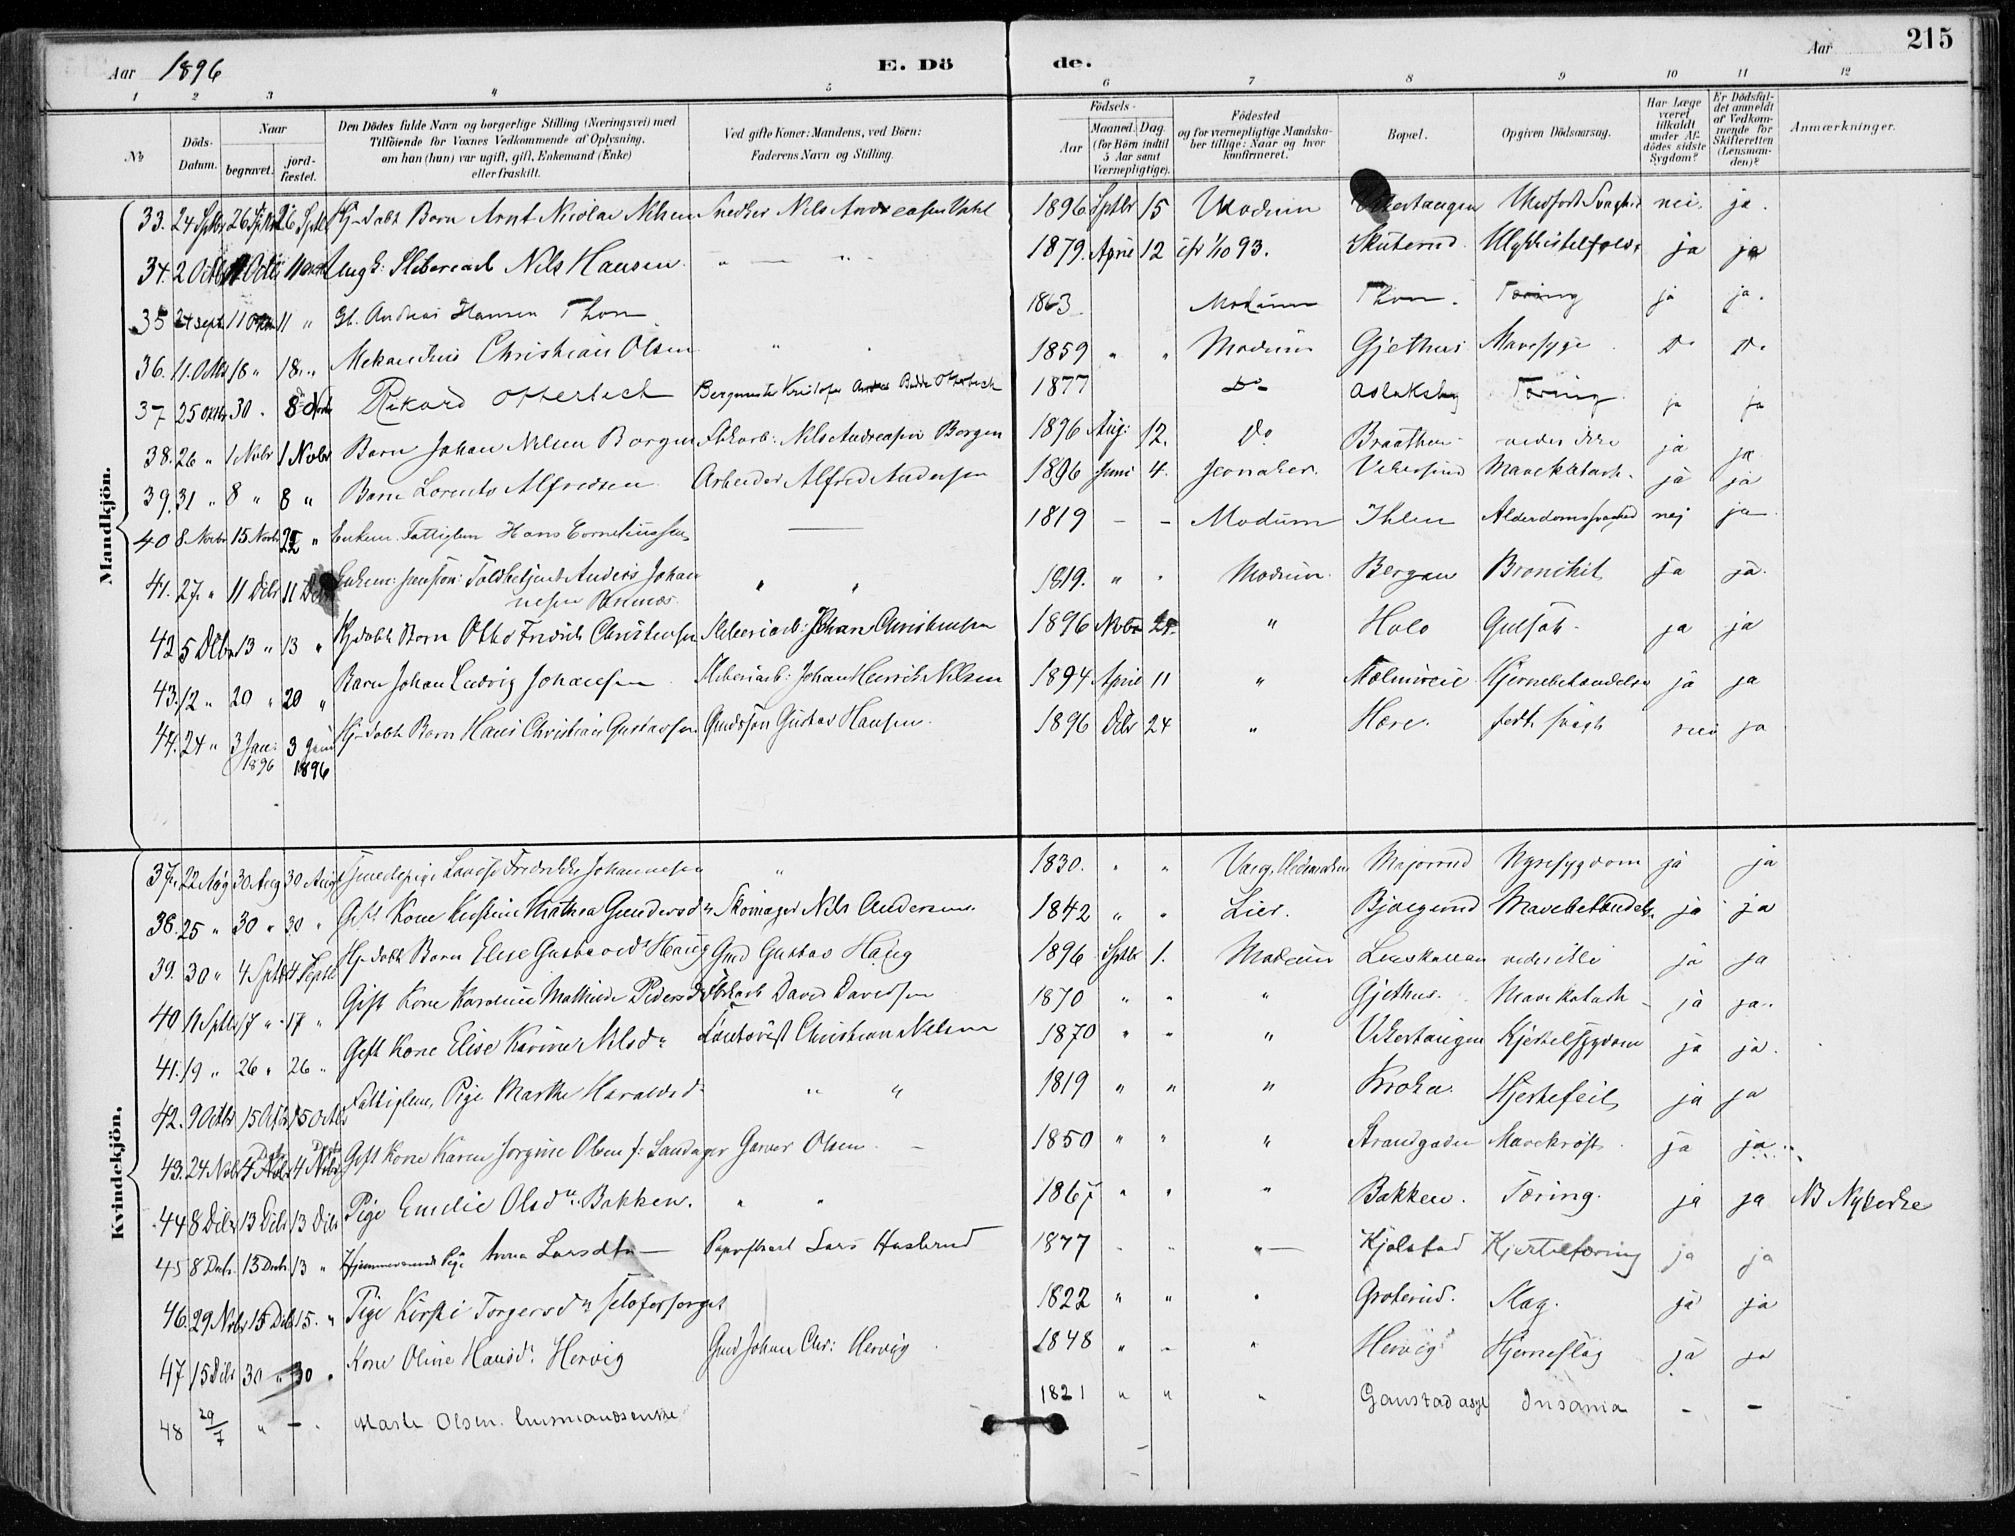 215
Aar 1896
E. Dö
de.
Aar
1 2 3 4 5 6 7 8 9 10 11 12
No
Döds-Datum.
Naar
begravet.
jord-fæstet.
Den Dödes fulde Navn og borgerlige Stilling (Næringsvei) med
Tilföiende for Voxnes Vedkommende af Oplysning,
om han (hun) var ugift, gift, Enkemand (Enke)
eller fraskilt.
Ved gifte Koner: Mandens, ved Börn:
Faderens Navn og Stilling.
Födsels-
Aar
Maaned. Dag.
(for Börn indtil
5 Aar samt
Værnepligtige).
Födested
og for værnepligtige Mandskaber
tillige: Naar og hvor
konfirmeret.
Bopæl.
Opgiven Dödsaarsag.
Har Læge været tilkaldt under Afdödes sidste Sygdom?
Er Dödsfaldet anmeldt af Vedkommende for Skifteretten (Lensmanden)?
Anmærkninger.
Mandkjön.
33. 24 Sptbr 26 Sptbr 26 Sptbr Hj-døbt Barn Arnt Nicolai Nilsen Snedker Nils Andreasen 1896 Sptbr 15 Modum Vikertangen Medfødt Svaghed nei. ja.
34. 2 Octbr 11 Octbr 11 Octbr Ung k: Sliberiarb Nils Hansen. " — " 1879. April 12 1/10 93. Skuterud ja ja
35 24 sept. 11 Oktbr 11 " Gb. Andreas Hansen Thon 1863 Modum Thon. Tæring ja ja.
36. 11. Octbr 18 " 18 " Mekanikus Christian Olsen " 1859 " " Modum Gjethus Mavesyge Do Do
37 25 oktbr 30 . 8 Novbr Rikard Otterbech Bergmester Kristofer Otterbech 1877 Do Aslaksby Tæring ja ja
38. 26 " 1 Novbr 1 Novbr Barn Johan Nilsen Borgen Nils Andreasen Borgen 1896 Aug: 12. Do Braathen vides ikke ja ja
39. 31 " 8 " 8 " Barn Lorents Alfredsen Arbeider Alfred Andersen 1896 Juni 4. Jevnaker. Vikersund Mavekatarh. ja ja
40 8 Novbr 15 Novbr 22 " Enkem. Fattiglem Hans Corneliussen — 1819 - - Modum Ihlen Alderdomssvaghed nej ja
41. 27 " 11 Dcbr 11 Dcbr Enkem: pension: Toldbetjent Anders Johan
nesen " " 1819. " " Modum. Bergan Bronchit ja ja.
42 5 Dcbr 13 " 13 " Hj-døbt Barn Otto Fredrik Christensen Sliberiarb: Johan Christensen 1896 Novbr " Holo Gulsot. ja ja
43. 12 " 20 " 20 " Barn Johan Ludvig Johansen Sliberiarb: Johan Henrik Nilsen 1894 April 11 " Hjernebetændelse ja ja
44. 24 " 3 Jan: 1896 3 Janr 1896 Hj-døbt Barn Hans Christian Gustavsen Gustav Hansen. 1896 Dcbr 24 " Hære. født svagt nei ja
Kvindekjön.
37. 22 Aug 30 Aug 30 Aug Tjenestepige Lovise Fredrikke Johannesen " 1830. " " Vang, Hedemarken Majorrud Nyresygdom ja ja
38. 25 " 30 " 30 " Gift Kone Kirstine Mathea Gundersdr Skomager Nils Andersen. 1842 " " Lier. Bjørgerud Mavebetændelse ja ja
39. 30 " 4 Sptbr 4 Septbr Hj-døbt Barn Elise Gustavsdr Haug Grd Gustav Haug 1896 Sptbr 1. Modum vides ikke ja ja
40 11 Sptbr 17 " 17 " Gift Kone Karoline Mathilde Pedersdr David Davidsen 1870 " " " Gjethus. Mavekatarh ja ja.
41. 19 " 26 " 26 " Gift Kone Elise Karine Nilsdr Christian Nilsen 1870 " " " Vikertangen Kjertelsygdom ja ja.
42. 9 Octbr 15 Octbr 15 Octbr Fattiglem, Pige Marthe Haraldsdr " " 1819 " " " Hjertefeil ja ja
43. 24 Novbr 4 Dcbr 4 Dcbr Gift Kone Karen Jorgine Olsen f: Sandager Garver Olsen. — 1850 " " " Strandgaden Mavekræft. ja ja
44 8 Dcbr 13 Dcbr 13 Dcbr Pige Emilie Olsdr Bakken. " " 1867 " " " Bakken. Tæring. ja ja NB Nykirke
45 8 Decb. 13 Decb. 13 " Hjemmeværende Pige Anna Larsdtr — Lars Haslerud 1877 " " " — Kjølstad Kjerteltæring ja ja
46. 29 Novbr 15 Dcbr 15. " Pige Kirsti Torgersdr selvforsørget 1822 " " " Groterud. Slag. ja ja
47 15 Dcbr 30 " 30 " Kone Oline Hansdr Hervig Grd Johan Chr: Hervig 1848 " " " Hervig Hjerneslag ja ja
48 29/7 " — Marte Olsen. husmandsenke 1821 " " " Gaustad asyl Insania — —